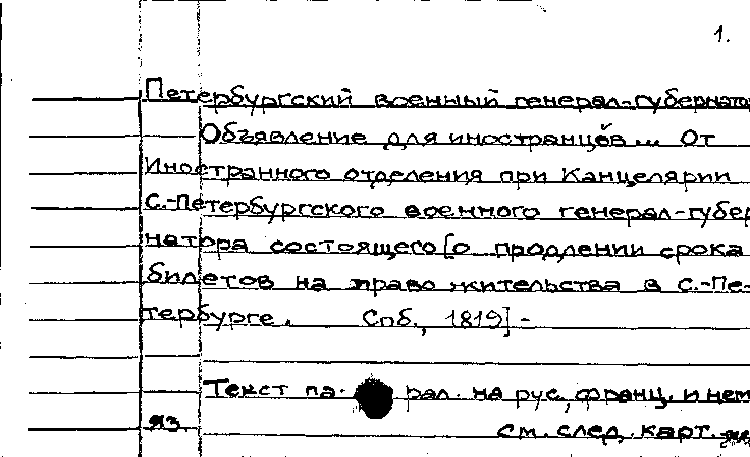 1.
Петербургский военный генерал-губернатор
Объявление для иностранцев... От
Иностранного отделения при Канцелярии
С.-Петербургского военного генерал-губер
натора состоящего [о продлении срока
билетов на право жительства в С.-Пе-
тербурге. Спб., 1819] -
Текст па. рал. на рус., франц. и нем
яз.
см. след. карт.